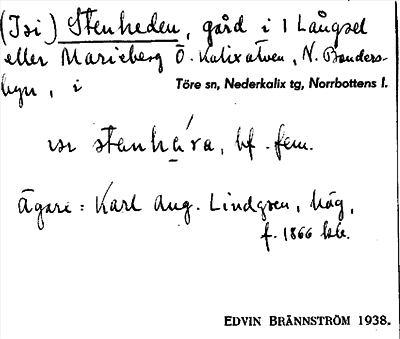 (Isi) Stenheden, gård i 1 Långsel
eller Marieberg Ö. Kalixälven, N. Bönders-
byn, i Töre sn, Nederkalix tg, Norrbottens l.
stenhára, bf. fem.
Ägare: Karl Aug. Lindgren, häg,
f. 1866 ibl.
EDVIN BRÄNNSTRÖM 1938.